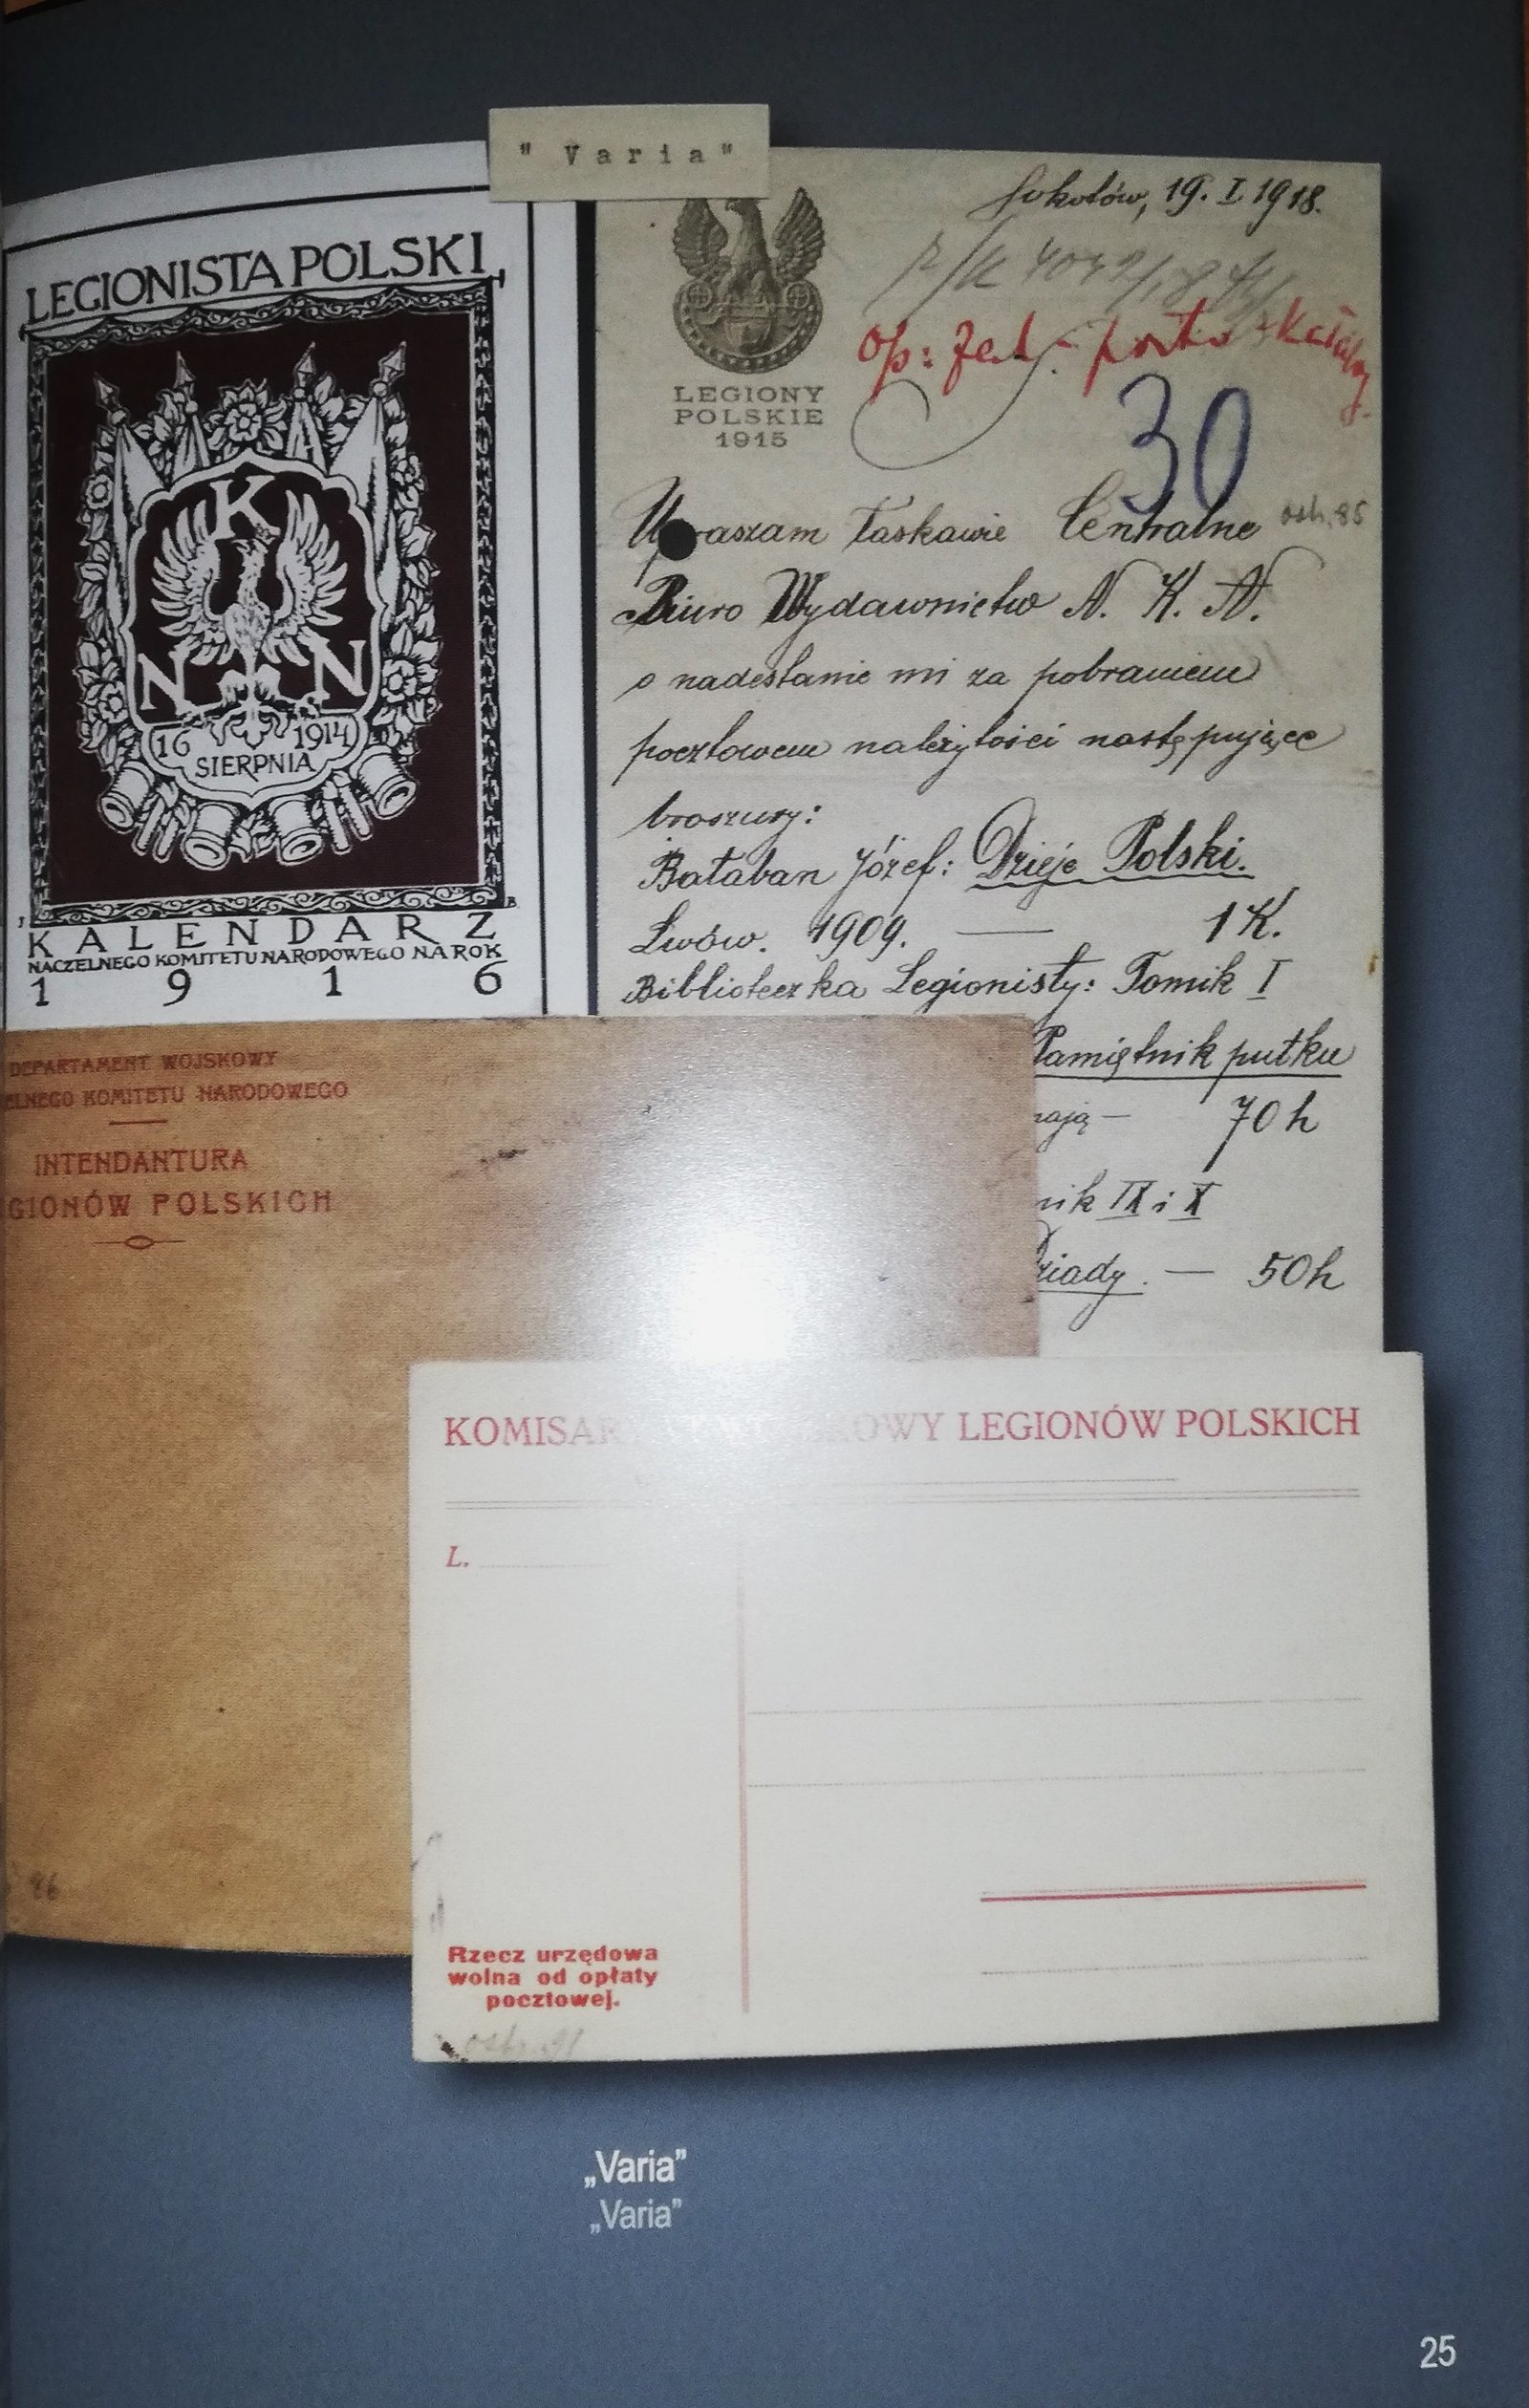 " Varia "
LEGIONISTA POLSKI
K
N N
16 1914
SIERPNIA
KALENDARZ
NACZELNEGO KOMITETU NARODOWEGO NA ROK
1916
LEGIONY
POLSKIE
1915
Sokołów, 19. I 1918.
op:
30
ostr. 85
Upraszam łaskawie Centralne
Biuro Wydawnictw N. K. N.
o nadesłanie mi za pobraniem
pocztowem należytości następujące
broszury:
Bałaban Józef: Dzieje Polski.
Lwów. 1909. — 1 K.
Biblioteczka Legionisty: Tomik I
Pamiętnik pułku
nają — 70 h
nik IX i X
ziady. — 50 h
DEPARTAMENT WOJSKOWY
ELNEGO KOMITETU NARODOWEGO
INTENDANTURA
GIONÓW POLSKICH
86
KOMISAR KOWY LEGIONÓW POLSKICH
L.
Rzecz urzędowa
wolna od opłaty
pocztowej.
ostr. 91
„Varia”
„Varia”
25